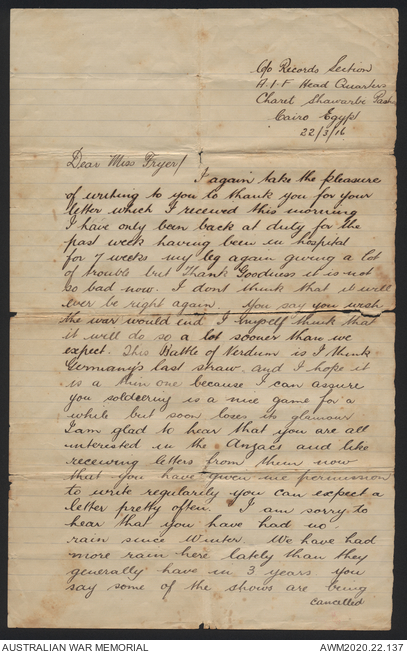 C/o Records Section
A.I.F Head Quarters
Charel Shawarbe Pash
Cairo Egypt
22/3/16
Dear Miss Fryer/
I again take the pleasure
of writing to you to thank you for your
letter which I received this morning
I have only been back at duty for the
past week having been in hospital
for 7 weeks my leg again giving a lot
of trouble but Thank Goodness it is not
so bad now. I dont think that it will
ever be right again. You say you wish
the war would end I myself think that
it will do so a lot sooner than we
expect. This Battle of Verdum is I think
Germany's last straw and I hope it
is a thin one because I can assure
you soldiering is a nice game for a
while but soon loses its glamour
I am glad to hear that you are all
interested in the Anzacs and like
receiving letters from them now
that you have given me permission
to write regularily you can expect a
letter pretty often. I am sorry to
hear that you have had no
rain since Winter. We have had
more rain here lately than they
generally have in 3 years you
say some of the shows are being
cancelled
AUSTRALIAN WAR MEMORIAL
AWM2020.22.137